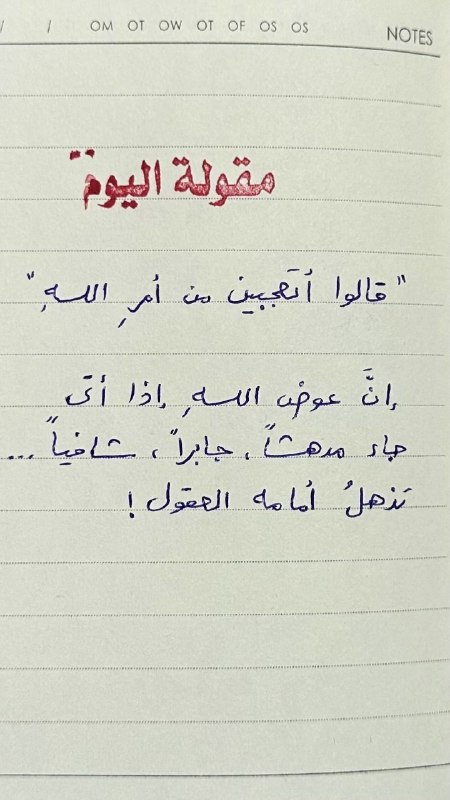 / / OM OT OW OT OF OS OS
NOTES
مقولة اليوم
"قالوا أتعجبين من أمرِ اللهِ"
إنَّ عوض اللهِ إذا أتى
جاء مدهشاً، جابراً، شافياً...
تذهلُ أمامه العقول!